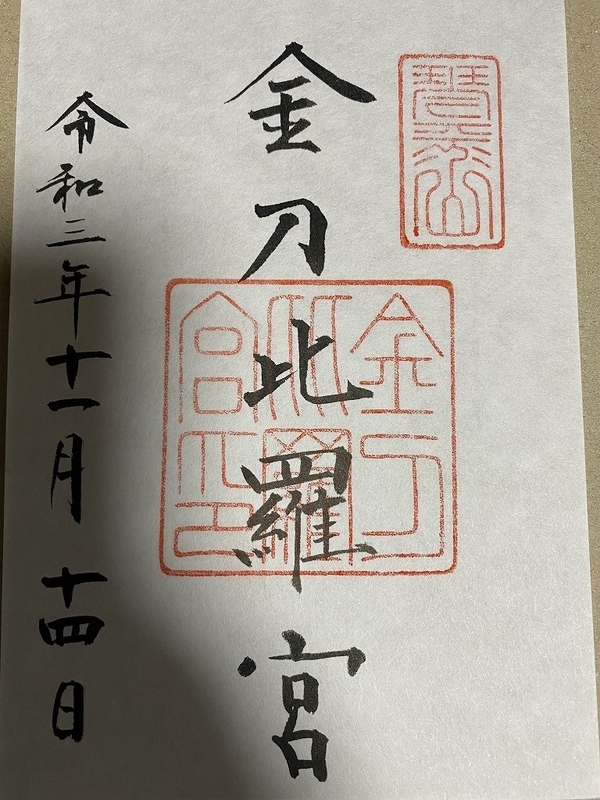 金刀比羅宮
金刀
比羅
宮印
令和三年十一月十四日